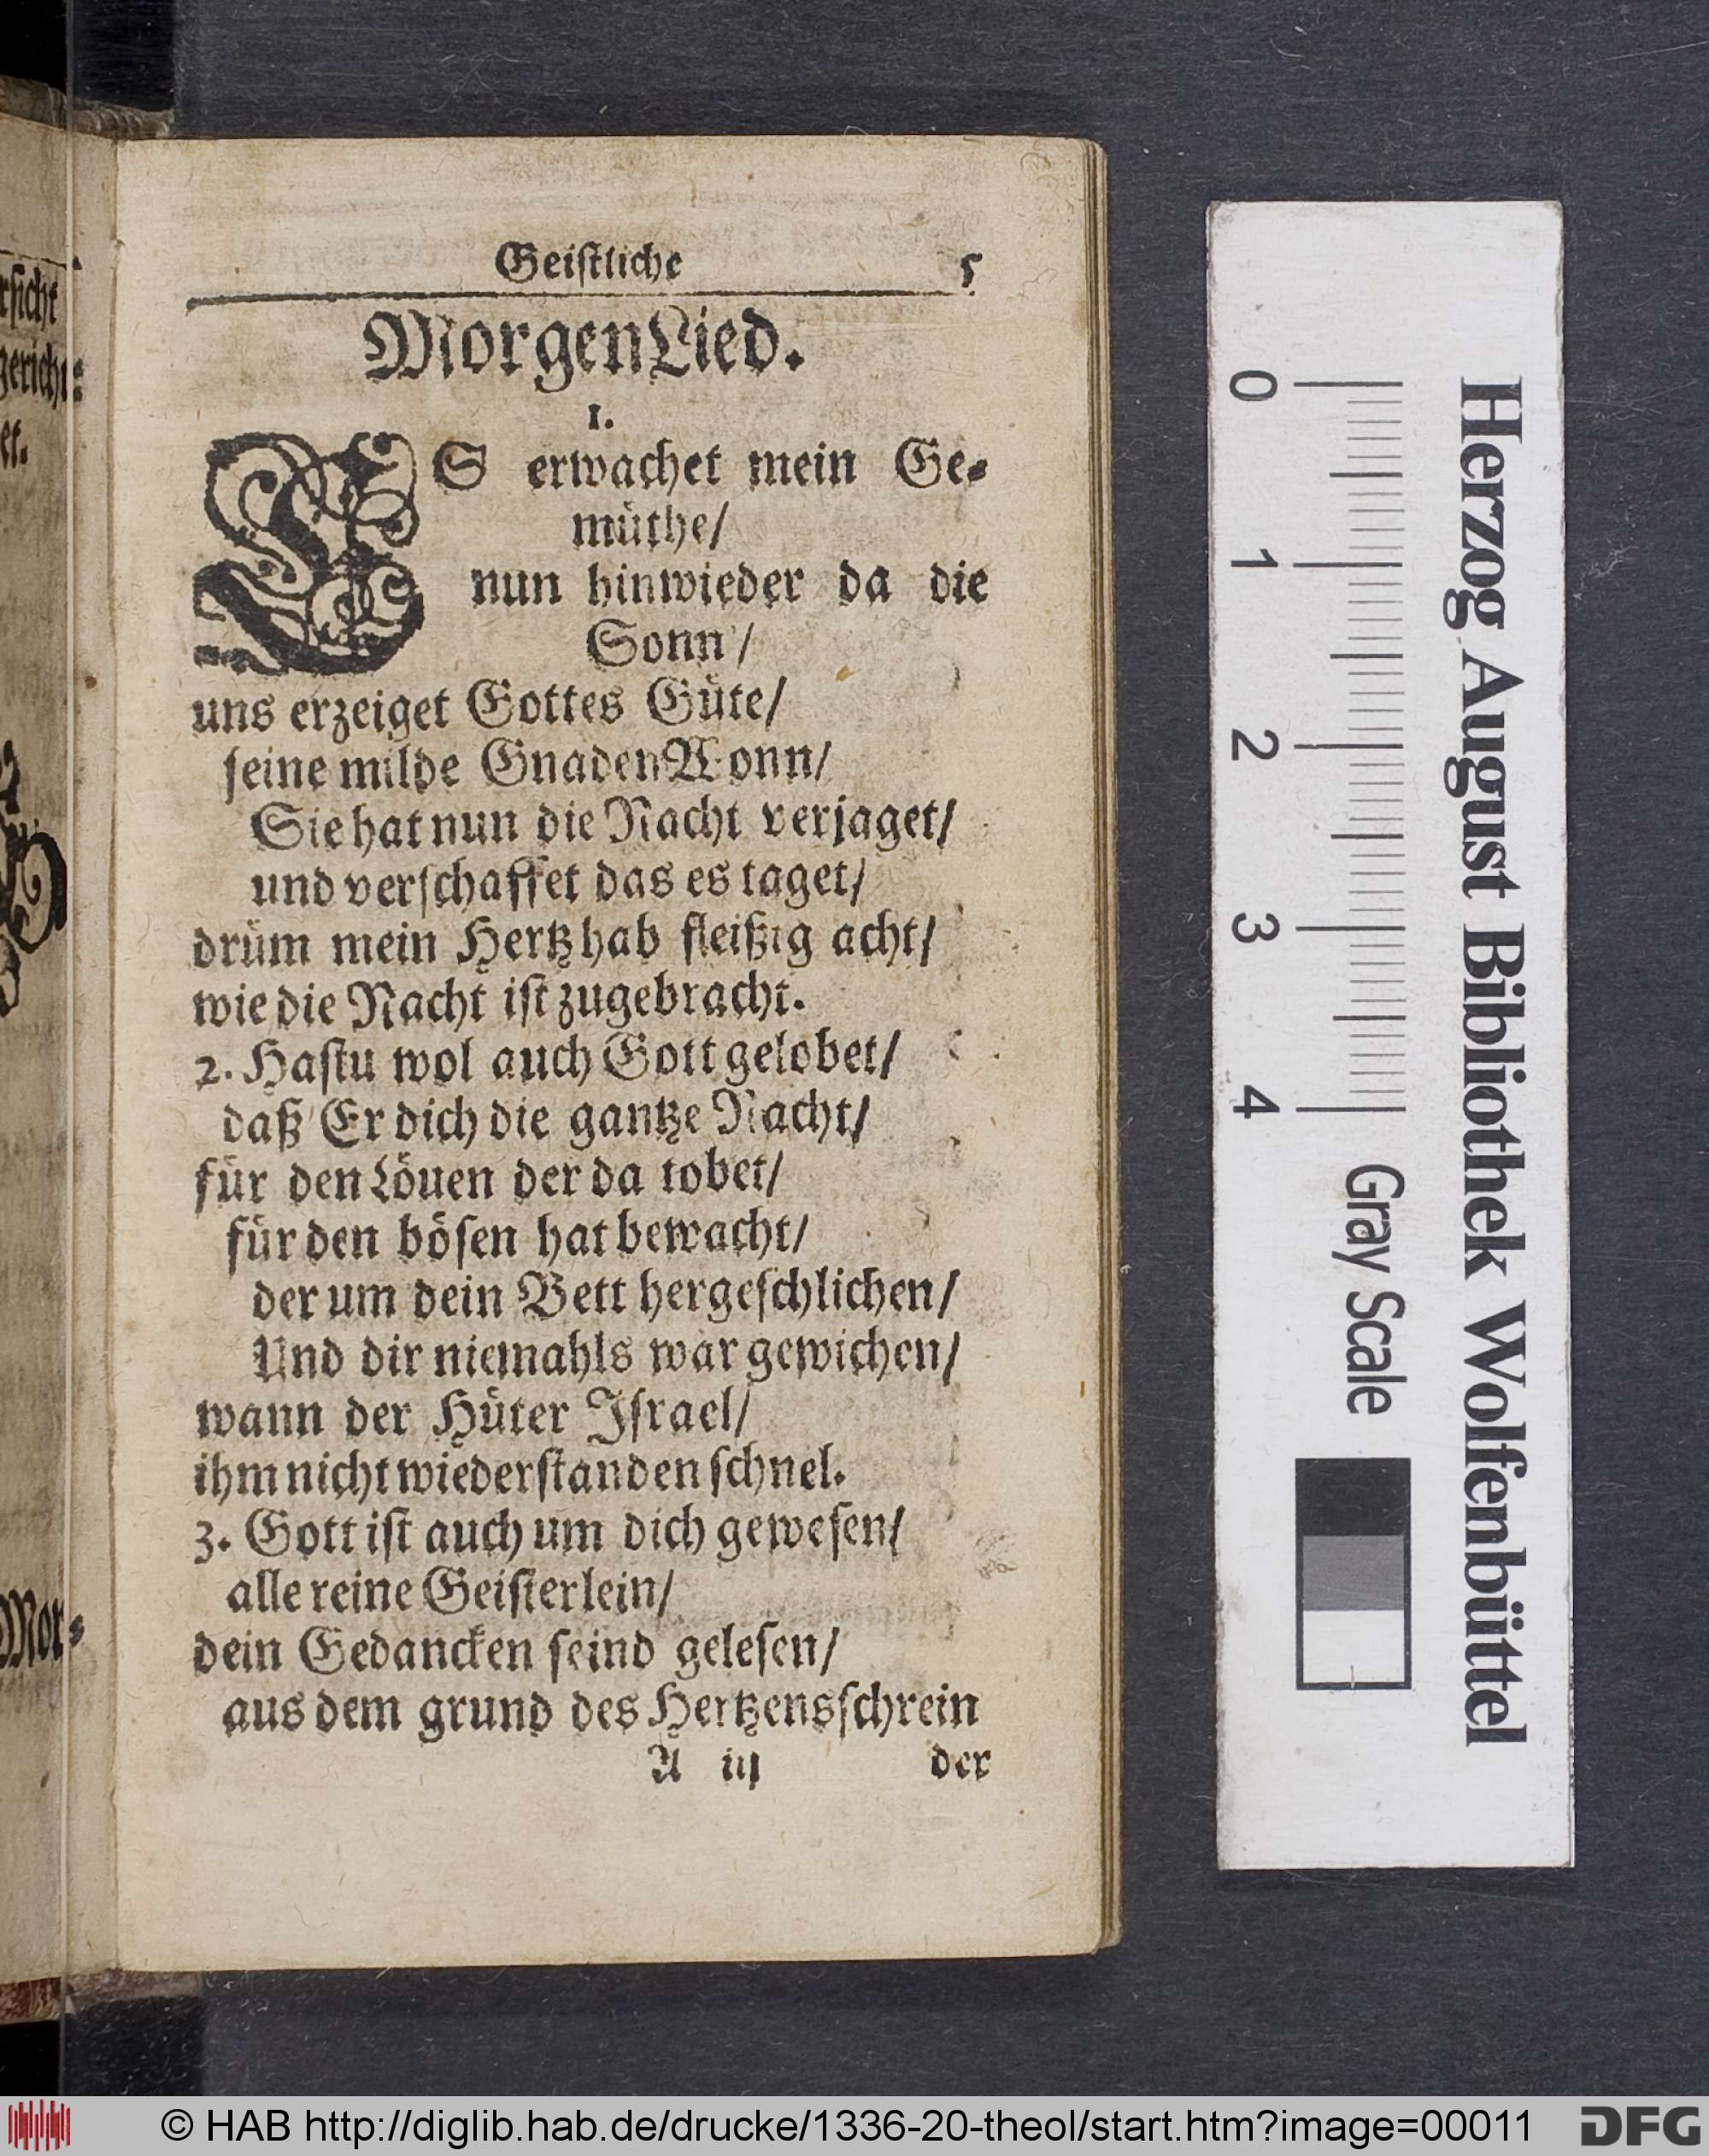 rſicht
gericht
et.
Mor⸗
Geiſtliche 5
MorgenLied.
1.
ES erwachet mein Ge⸗
müthe/
nun hinwieder da die
Sonn/
uns erzeiget Gottes Güte/
ſeine milde GnadenWonn/
Sie hat nun die Nacht verjaget/
und verſchaffet das es taget/
drüm mein Hertz hab fleißig acht/
wie die Nacht iſt zugebracht.
2. Haſtu wol auch Gott gelobet/
daß Er dich die gantze Nacht/
für den Löuen der da tobet/
für den böſen hat bewacht/
der um dein Bett hergeſchlichen/
Und dir niemahls war gewichen/
wann der Hüter Iſrael/
ihm nicht wiederſtanden ſchnel.
3. Gott iſt auch um dich geweſen/
alle reine Geiſterlein/
dein Gedancken ſeind geleſen/
aus dem grund des Hertzensſchrein
A iij der
Herzog August Bibliothek Wolfenbüttel
0 1 2 3 4 Gray Scale
© HAB http://diglib.hab.de/drucke/1336-20-theol/start.htm?image=00011
DFG